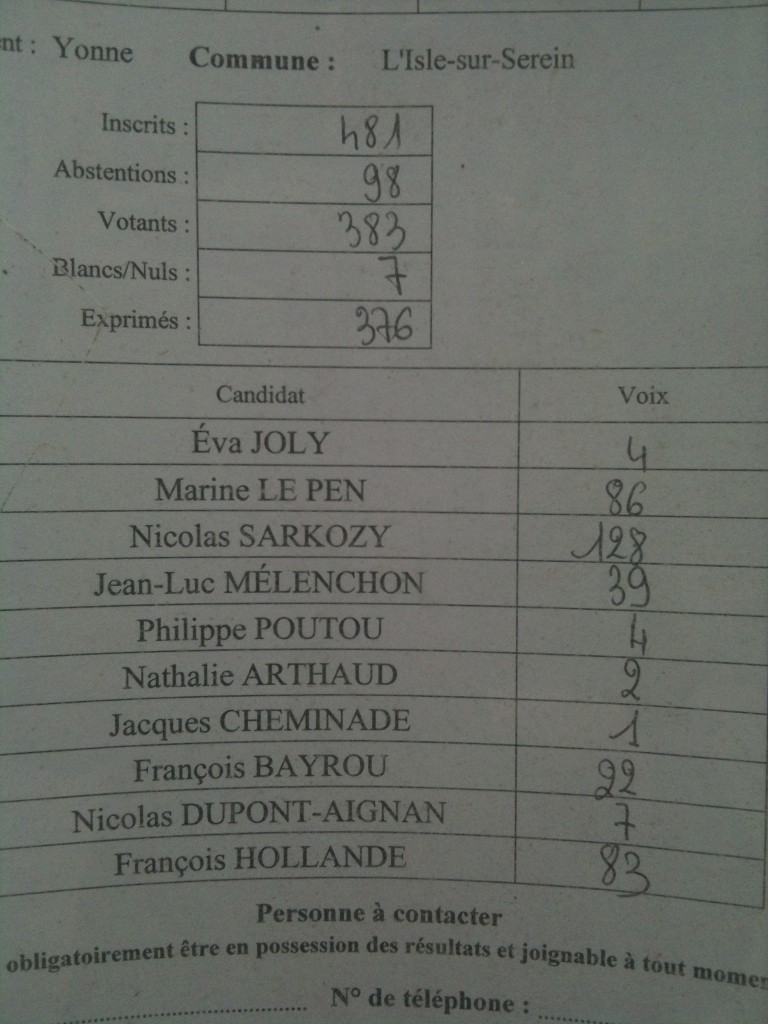 nt : Yonne Commune : L'Isle-sur-Serein
Inscrits : 481
Abstentions : 98
Votants : 383
Blancs/Nuls : 7
Exprimés : 376
Candidat Voix
Éva JOLY 4
Marine LE PEN 86
Nicolas SARKOZY 128
Jean-Luc MÉLENCHON 39
Philippe POUTOU 4
Nathalie ARTHAUD 2
Jacques CHEMINADE 1
François BAYROU 22
Nicolas DUPONT-AIGNAN 7
François HOLLANDE 83
Personne à contacter
obligatoirement être en possession des résultats et joignable à tout momen
N° de téléphone :